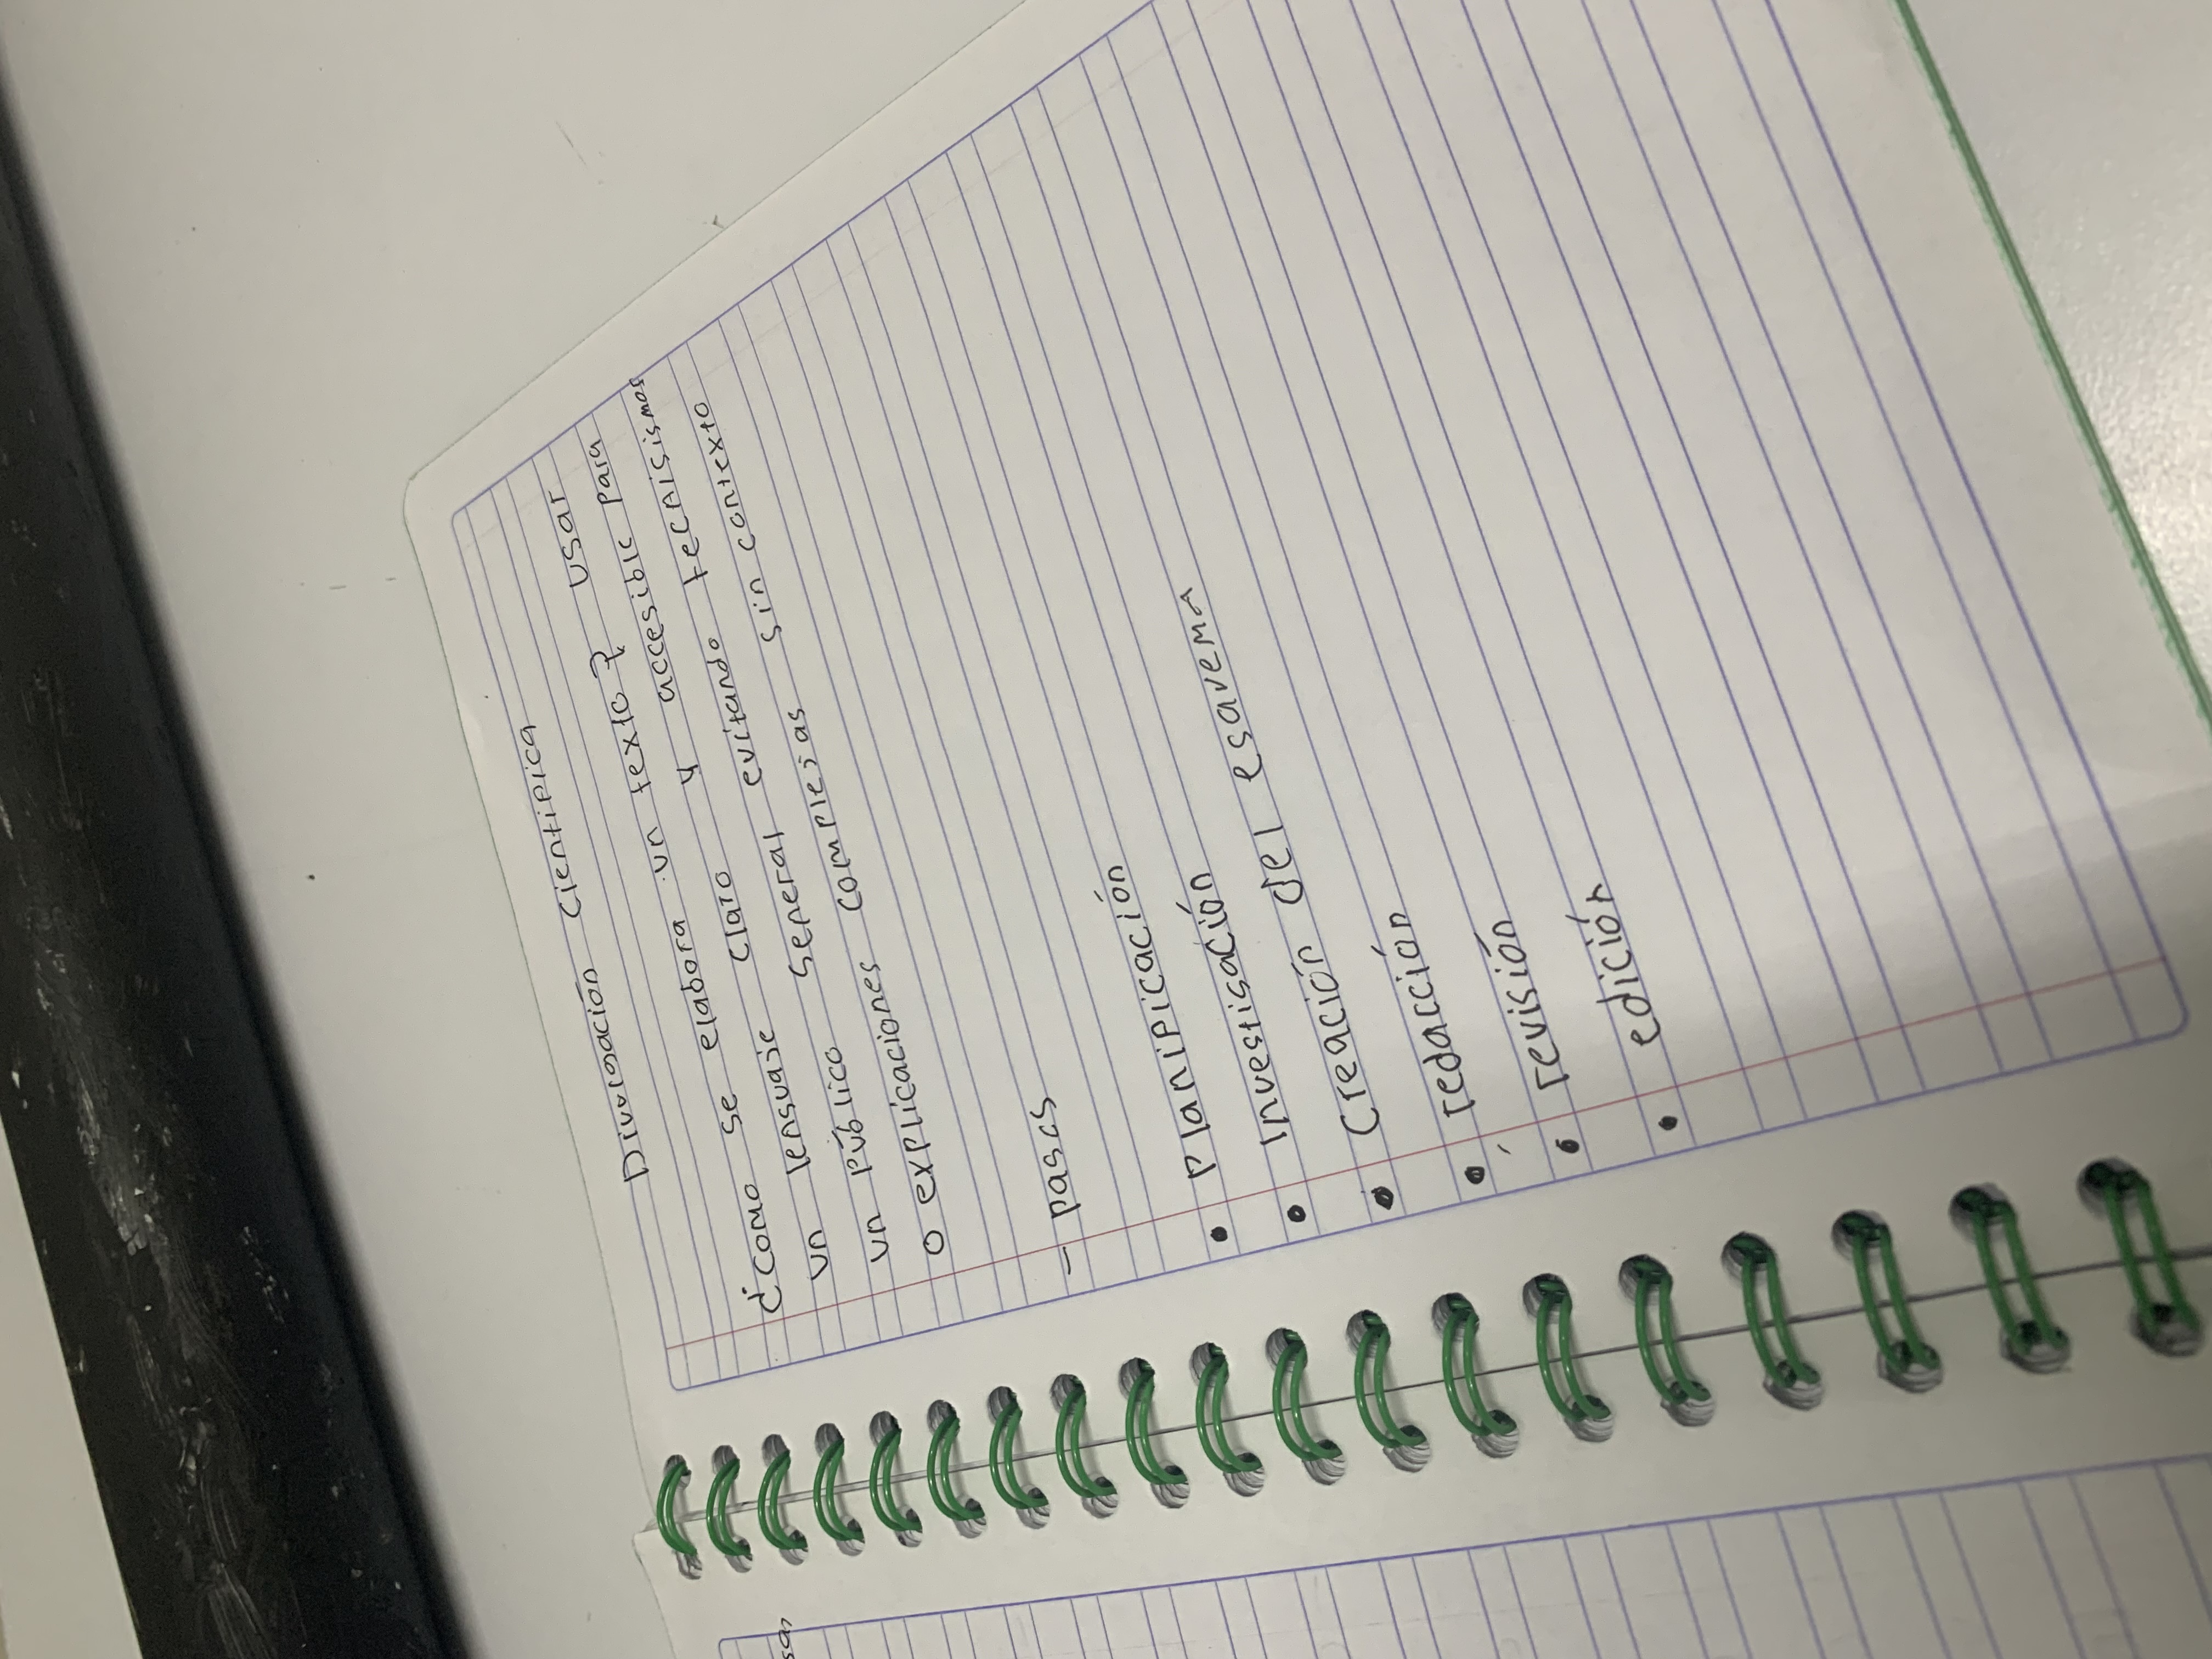 Divulgación Cientifica
¿Como se elabora un texto? usar
un lenguaje claro y accesible para
un público general evitando tecnisismos
o explicaciones complejas sin contexto
- pasos
• Planificación
• Investigación
• Creación del esquema
• redacción
• revisión
• edición